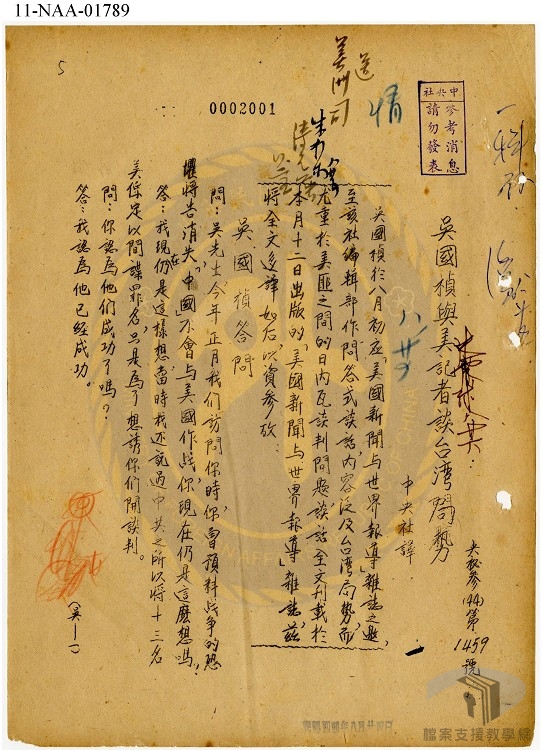 11-NAA-01789
5
0002001
中央社
參考消息
請勿發表
送
美洲司
情
吳國楨與美記者談台灣問勢
中央社譯
央秘參(44)第1459號
吳國楨於八月初应「美國新聞与世界報導」雜誌之邀
至該社編輯部作問答式談話，內容泛及台灣局勢，而
尤重於美匪之間的日內瓦談判問題，談話全文刊載於
本月十二日出版的「美國新聞与世界報導」雜誌，茲
將全文迻譯如后，以資參攷：
吳國楨答問
問：吳先生，今年正月我們訪問你時，你曾預料战爭的恐
懼將告消失，「中國」不會与美國作战，你現在仍是這麼想嗎？
答：我現在仍是這樣想，當時我还說过中共之所以將十三名
美俘定以間諜罪名只是為了想請你們開談判。
問：你認為他們成功了嗎？
答：我認為他已经成功。
(吳一)
檔案支援教學網